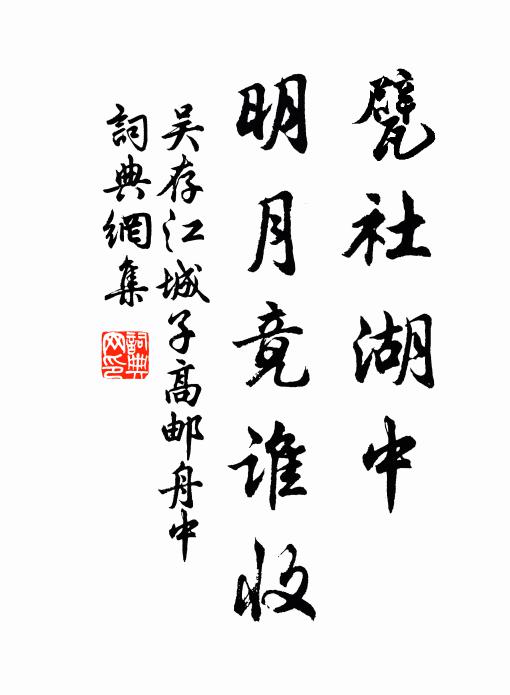 甓社湖中
明月竟谁收
吴存江城子高邮舟中
詞典網集
詞典网印